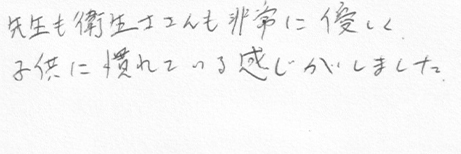 先生も衛生士さんも非常に優しく
子供に慣れている感じがしました。